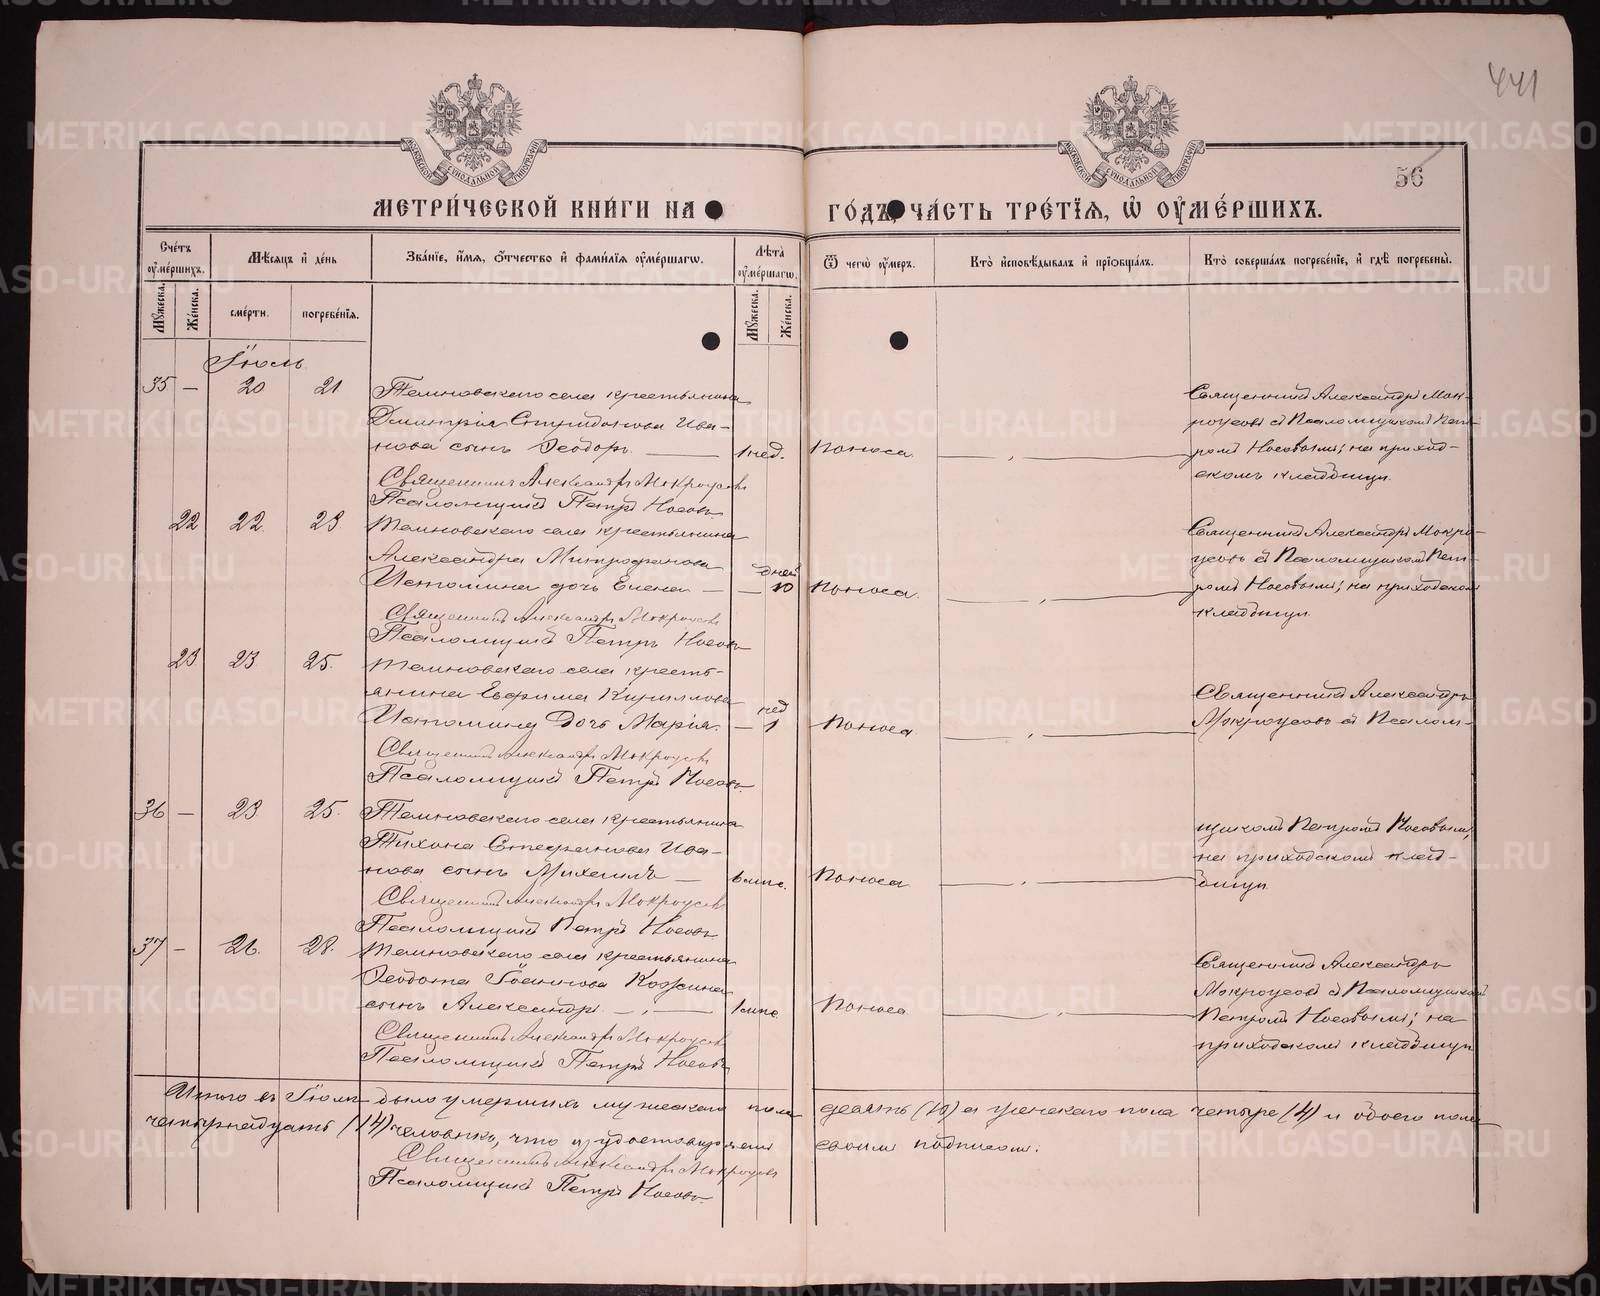 441
56
МЕТРИ́ЧЕСКОЙ КНИ́ГИ НА
ГО́ДЪ, ЧА́СТЬ ТРЕ́ТЇѦ, Ѡ҆ ОУ҆МЕ́РШИХЪ.
Сче́тъ оу҆ме́ршихъ.
Мѣсяцъ и҆ де́нь
Зва́нїе, и҆́мѧ, ѻ҆́тчество и҆ фами́лїѧ оу҆ме́ршагѡ.
Лѣта̀ оу҆ме́ршагѡ.
Ѿ чегѡ̀ оу҆́меръ.
Кто̀ и҆сповѣ́дывалъ и҆ прїѡбща́лъ.
Кто̀ соверша́лъ погребе́нїе, и҆ гдѣ̀ погребены̀.
Мꙋ́жеска.
Же́нска.
сме́рти.
погребе́нїѧ.
Мꙋ́жеска.
Же́нска.
Іюль
35 — 20 21 Темновскаго села крестьянина
Димитрія Спиридонова Ива-
нова сынъ Ѳеодоръ. 1 нед. Поноса
Священникъ Александръ Мокроусовъ
Псаломщикъ Петръ Носовъ
Священникъ Александръ Мок-
роусовъ съ Псаломщикомъ Пет-
ромъ Носовымъ; на приход-
скомъ кладбищѣ.
22 22 23 Темновскаго села крестьянина
Александра Митрофанова
Истомина дочь Елена — — дней 10 Поноса.
Священникъ Александръ Мокроусовъ
Псаломщикъ Петръ Носовъ
Священникъ Александръ Мокро-
усовъ съ Псаломщикомъ Пет-
ромъ Носовымъ; на приходском
кладбищѣ
23 23 25. Темновскаго села кресть-
янина Евфима Кириллова
Истомина дочь Марія. — нед 1 Поноса
Священникъ Александръ Мокроусовъ
Псаломщикъ Петръ Носовъ
Священникъ Александръ
Мокроусовъ съ Псалом-
щикомъ Петромъ Носовымъ,
на приходскомъ клад-
бищѣ
36 — 23 25. Темновскаго села крестьянина
Тихона Стефанова Ива-
нова сынъ Михаилъ — 6 мѣс. Поноса
Священникъ Александръ Мокроусовъ
Псаломщикъ Петръ Носовъ
37 — 26. 28. Темновскаго села крестьянина
Ѳеодота Іоаннова
сынъ Александръ. 1 мѣс. Поноса
Священникъ Александръ Мокроусовъ
Псаломщикъ Петръ Носовъ
Священникъ Александръ
Мокроусовъ съ Псаломщикомъ
Петромъ Носовымъ; на
приходскомъ кладбищѣ
Итого въ Іюлѣ было умершихъ мужескаго пола десять (10) а женскаго пола четыре (4) и обоего пола
четырнадцать (14) человѣкъ, что и удостовѣряемъ своимъ подписомъ.
Священникъ Александръ Мокроусовъ
Псаломщикъ Петръ Носовъ